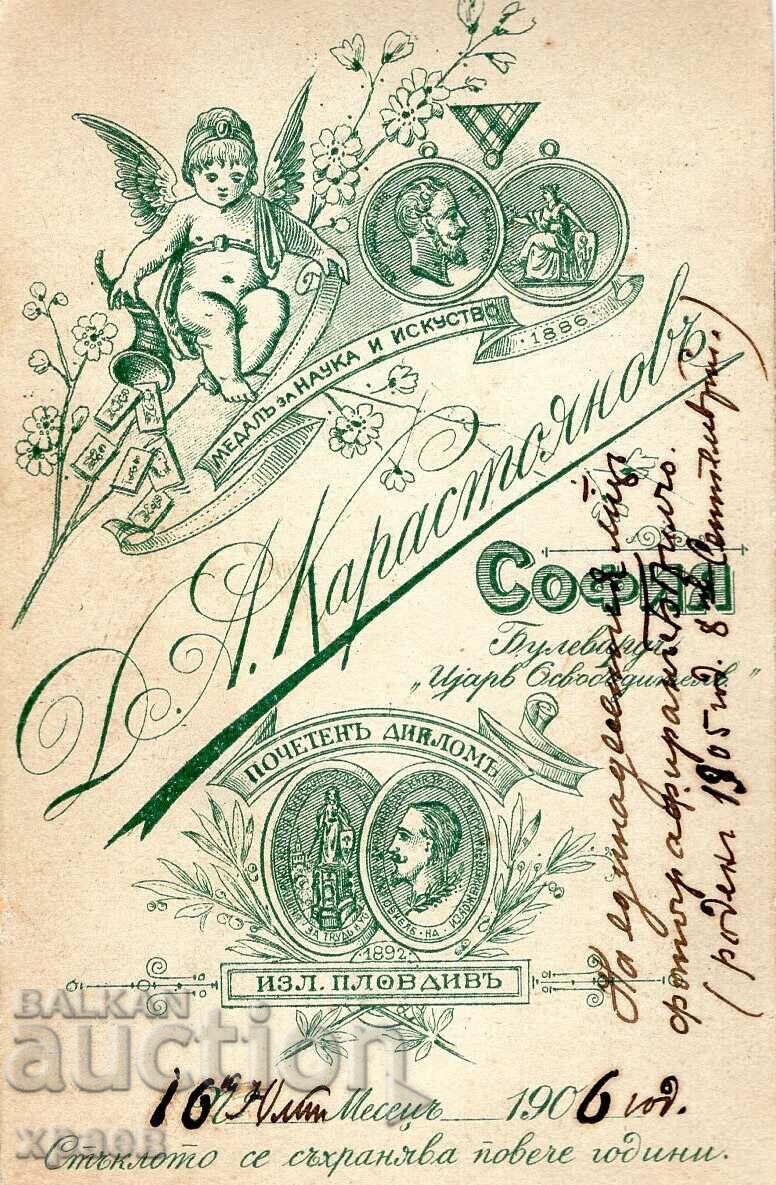 МЕДАЛЪ ЗА НАУКА И ИСКУСТВО
1886
Д. А. Карастояновъ
СОФИЯ
Булевардъ
„Царь Освободитель“
ПОЧЕТЕНЪ ДИПЛОМЪ
ЗА ТРУДЪ
1892
ИЗЛ. ПЛОВДИВЪ
16й Юлий Месецъ 1906 год.
Стъклото се съхранява повече години.
На единадесетия мѣц
фотографиранъ
(роденъ 1905 год. 8 Септемврий.)
BALKAN
auction
храсов